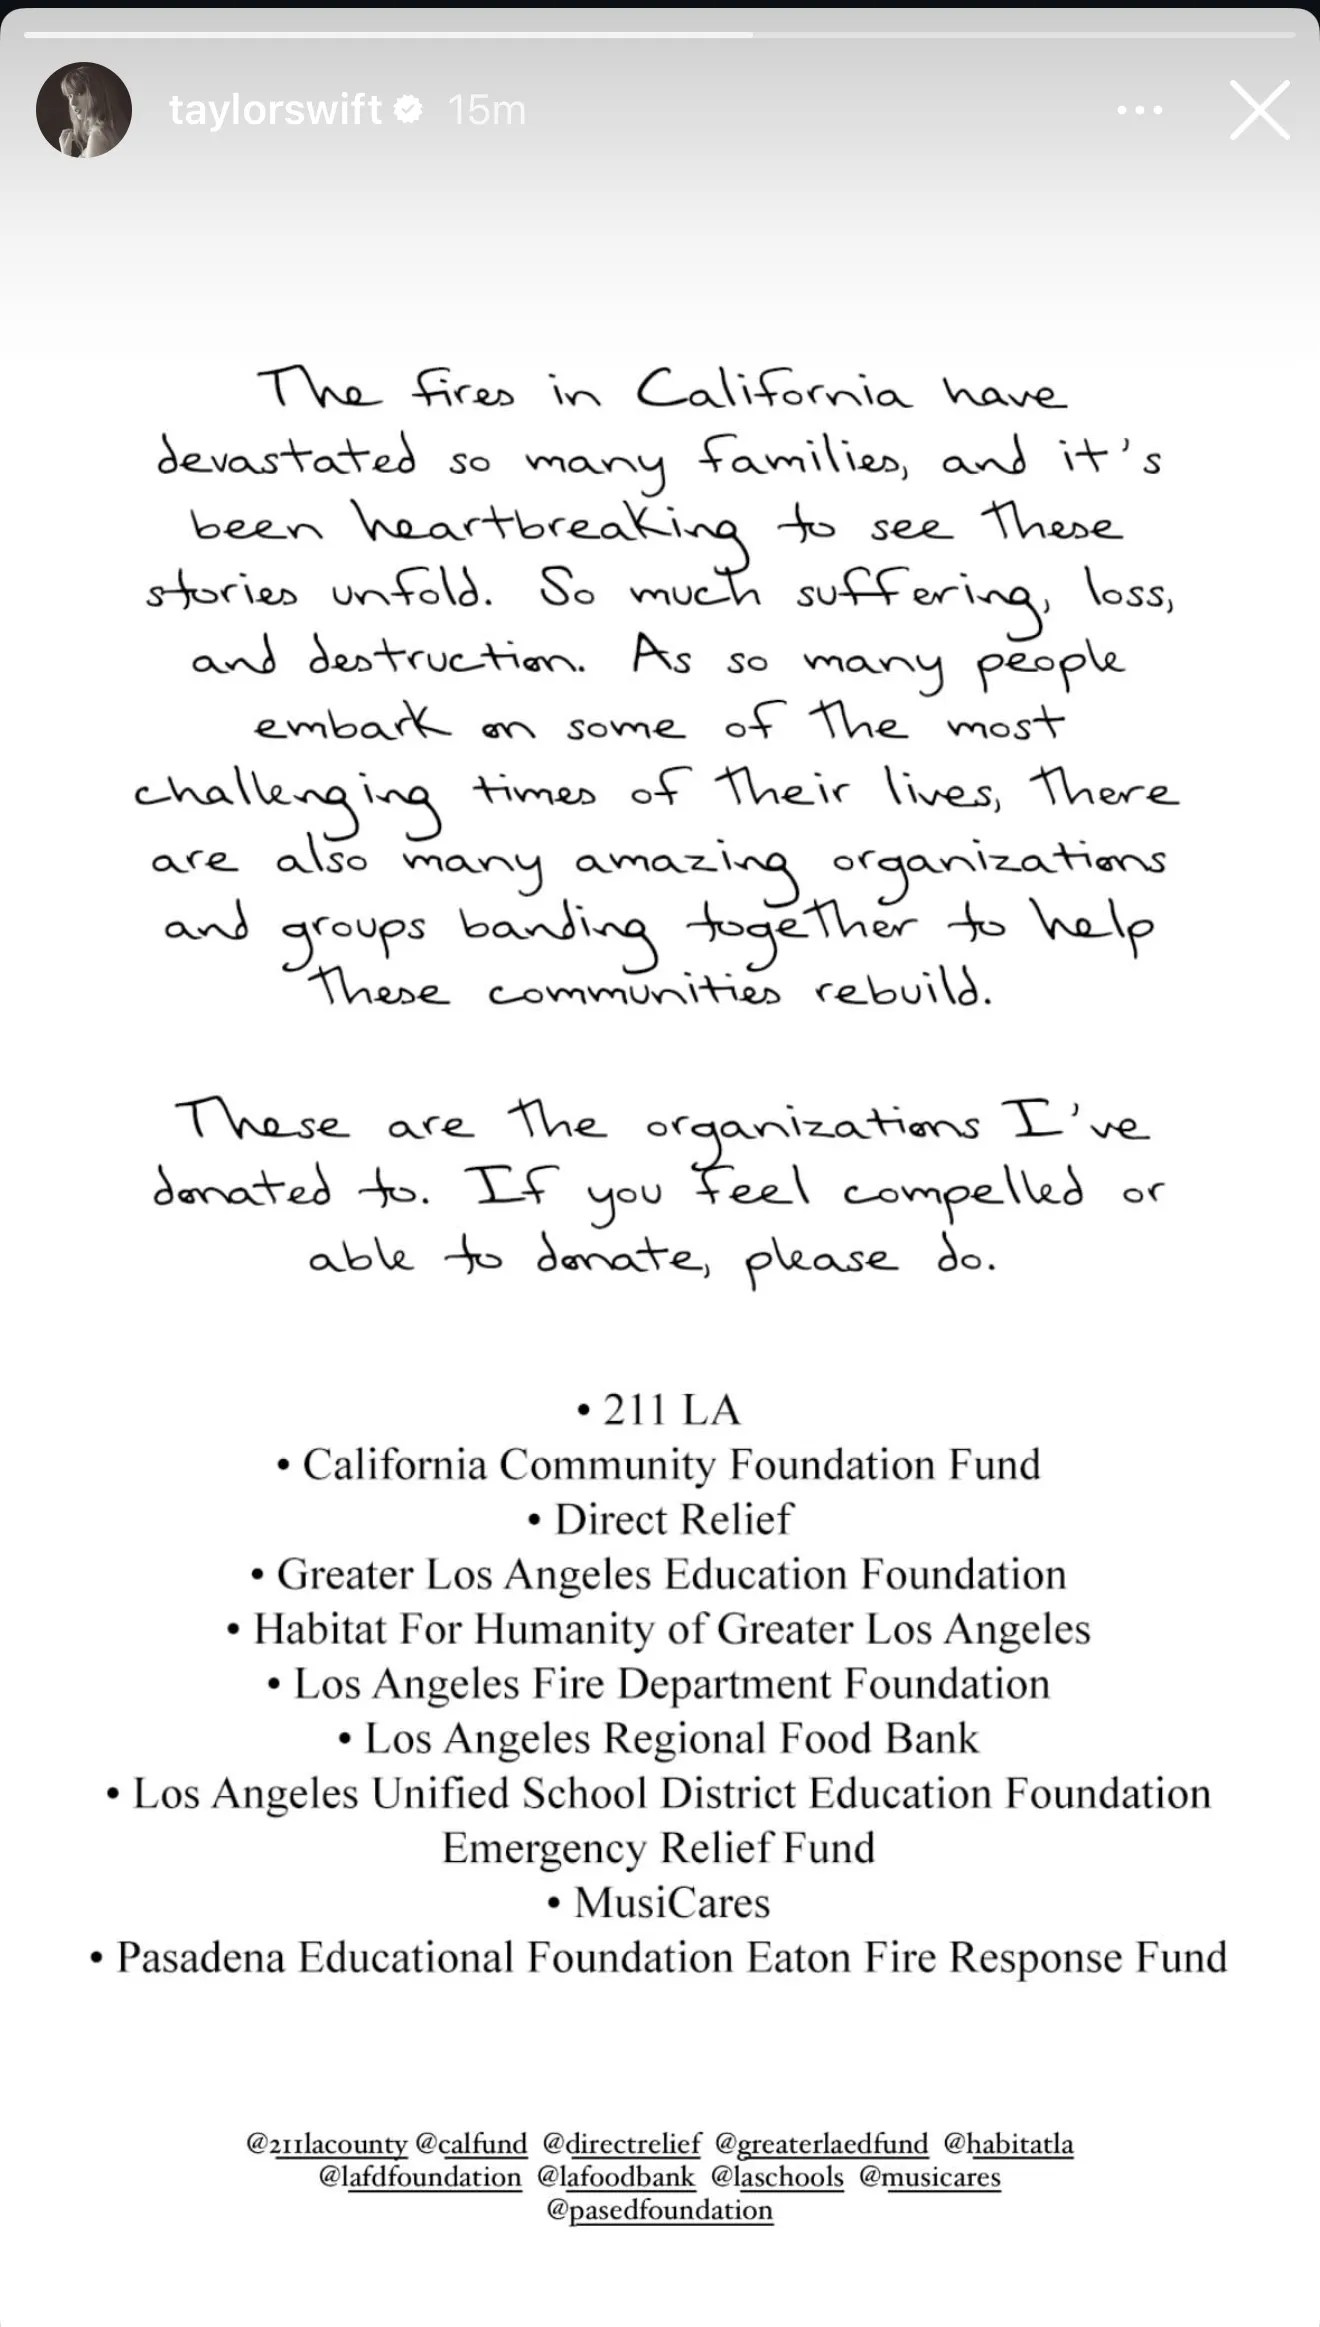 taylorswift 15m
The fires in California have
devastated so many families, and it's
been heartbreaking to see these
stories unfold. So much suffering, loss,
and destruction. As so many people
embark on some of the most
challenging times of their lives, there
are also many amazing organizations
and groups banding together to help
these communities rebuild.
These are the organizations I've
donated to. If you feel compelled or
able to donate, please do.
• 211 LA
• California Community Foundation Fund
• Direct Relief
• Greater Los Angeles Education Foundation
• Habitat For Humanity of Greater Los Angeles
• Los Angeles Fire Department Foundation
• Los Angeles Regional Food Bank
• Los Angeles Unified School District Education Foundation
Emergency Relief Fund
• MusiCares
• Pasadena Educational Foundation Eaton Fire Response Fund
@211lacounty @calfund @directrelief @greaterlaedfund @habitatla
@lafdfoundation @lafoodbank @laschools @musicares
@pasedfoundation